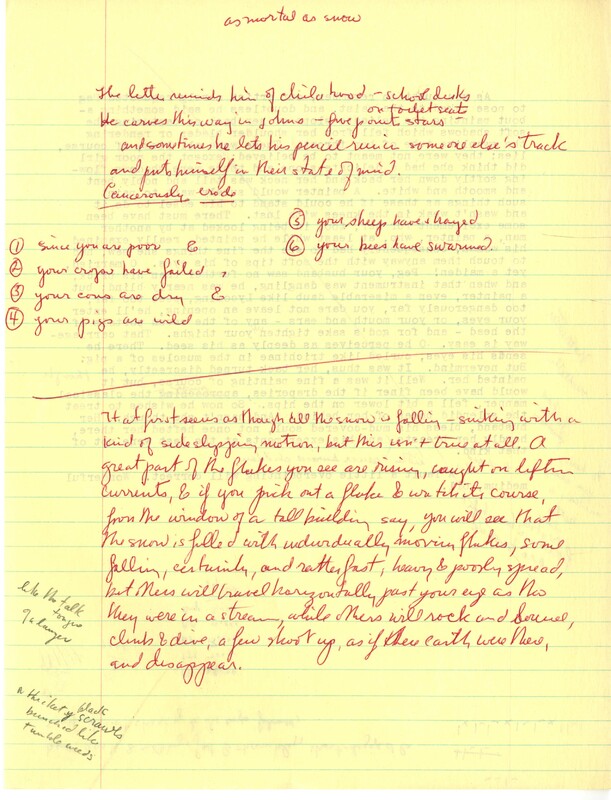 as mortal as snow
The letter reminds him of childhood - school desks
on toilet seats
He carves this way in johns - five point stars
and sometimes he lets his pencil run in someone else's track
and puts himself in their state of mind.
Cancerously erode
① since you are poor &
② your crops have failed,
③ your cows are dry &
④ your pigs are wild
⑤ your sheep have strayed
⑥ your bees have swarmed
It at first seems as though all the snow is falling - sinking with a
kind of side slipping motion, but this isn't true at all. A
great part of the flakes you see are rising, caught on lifting
currents, & if you pick out a flake & watch its course,
from the window of a tall building say, you will see that
the snow is filled with individually moving flakes, some
falling, certainly, and rather fast, heavy & poorly spread,
but others will travel horizontally past your eye as tho
they were in a stream, while others will rock and bound,
climb & dive, a few shoot up, as if there earth were there,
and disappear.
like the talk
tongue
of a lawyer
black
a thickety scrawls
bunched like
tumble weeds